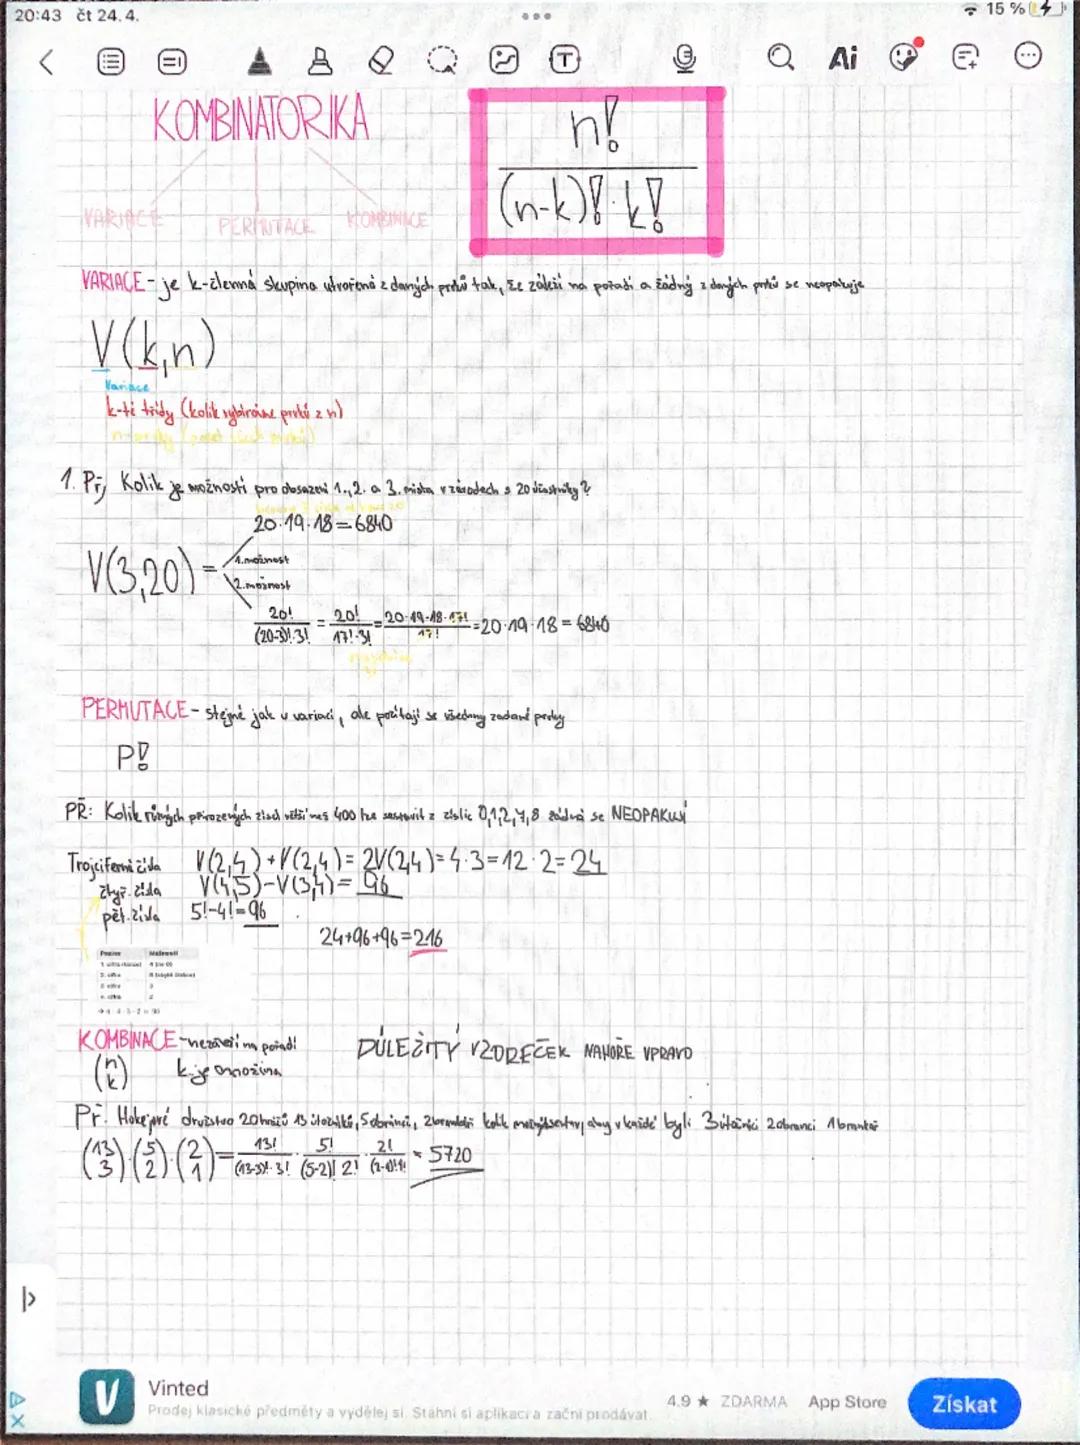 20:43 čt 24. 4.
15 %
Ai
KOMBINATORIKA
n!
(n-k)! · k!
VARIACE
PERMUTACE
KOMBINACE
VARIACE - je k-členná skupina utvořená z daných prvků tak, že záleží na pořadí a žádný z daných prvků se neopakuje
V(k,n)
Variace
k-té třídy (kolik vybíráme prvků z n)
1. Př, Kolik je možností pro obsazení 1., 2. a 3. místa v závodech s 20 účastníky?
20·19·18=6840
V(3,20) =
1.možnost
2.možnost
20!/(20-3)!·3! = 20!/17!·3! = 20·19·18·17!/17! = 20·19·18 = 6840
PERMUTACE - stejné jak u variací, ale počítají se všechny zadané prvky
P!
PŘ: Kolik různých přirozených čísel větší nes 400 lze sestavit z číslic 0,1,2,4,8 žádná se NEOPAKUJÍ
Trojciferná čísla V(2,4)+V(2,4)=2V(2,4)=4·3=12·2=24
čtyř. čísla V(4,5)-V(3,4)=96
pět. čísla 5!-4!=96
24+96+96=216
Pozice Možnosti
KOMBINACE - nezáleží na pořadí
DŮLEŽITÝ VZOREČEK NAHOŘE VPRAVO
(n k) k je množina
Př. Hokejové družstvo 20 hráčů 13 útočníků, 5 obránci, 2 brankáři kolik aby v každé byli 3 útočníci 2 obranci 1 brankář
(13 3)·(5 2)·(2 1)=13!/(13-3)!·3! · 5!/(5-2)! 2! · 2!/(2-1)!·1! = 5720
Vinted
Prodej klasické předměty a vydělej si. Stáhni si aplikaci a začni prodávat.
4.9 ★ ZDARMA App Store
Získat